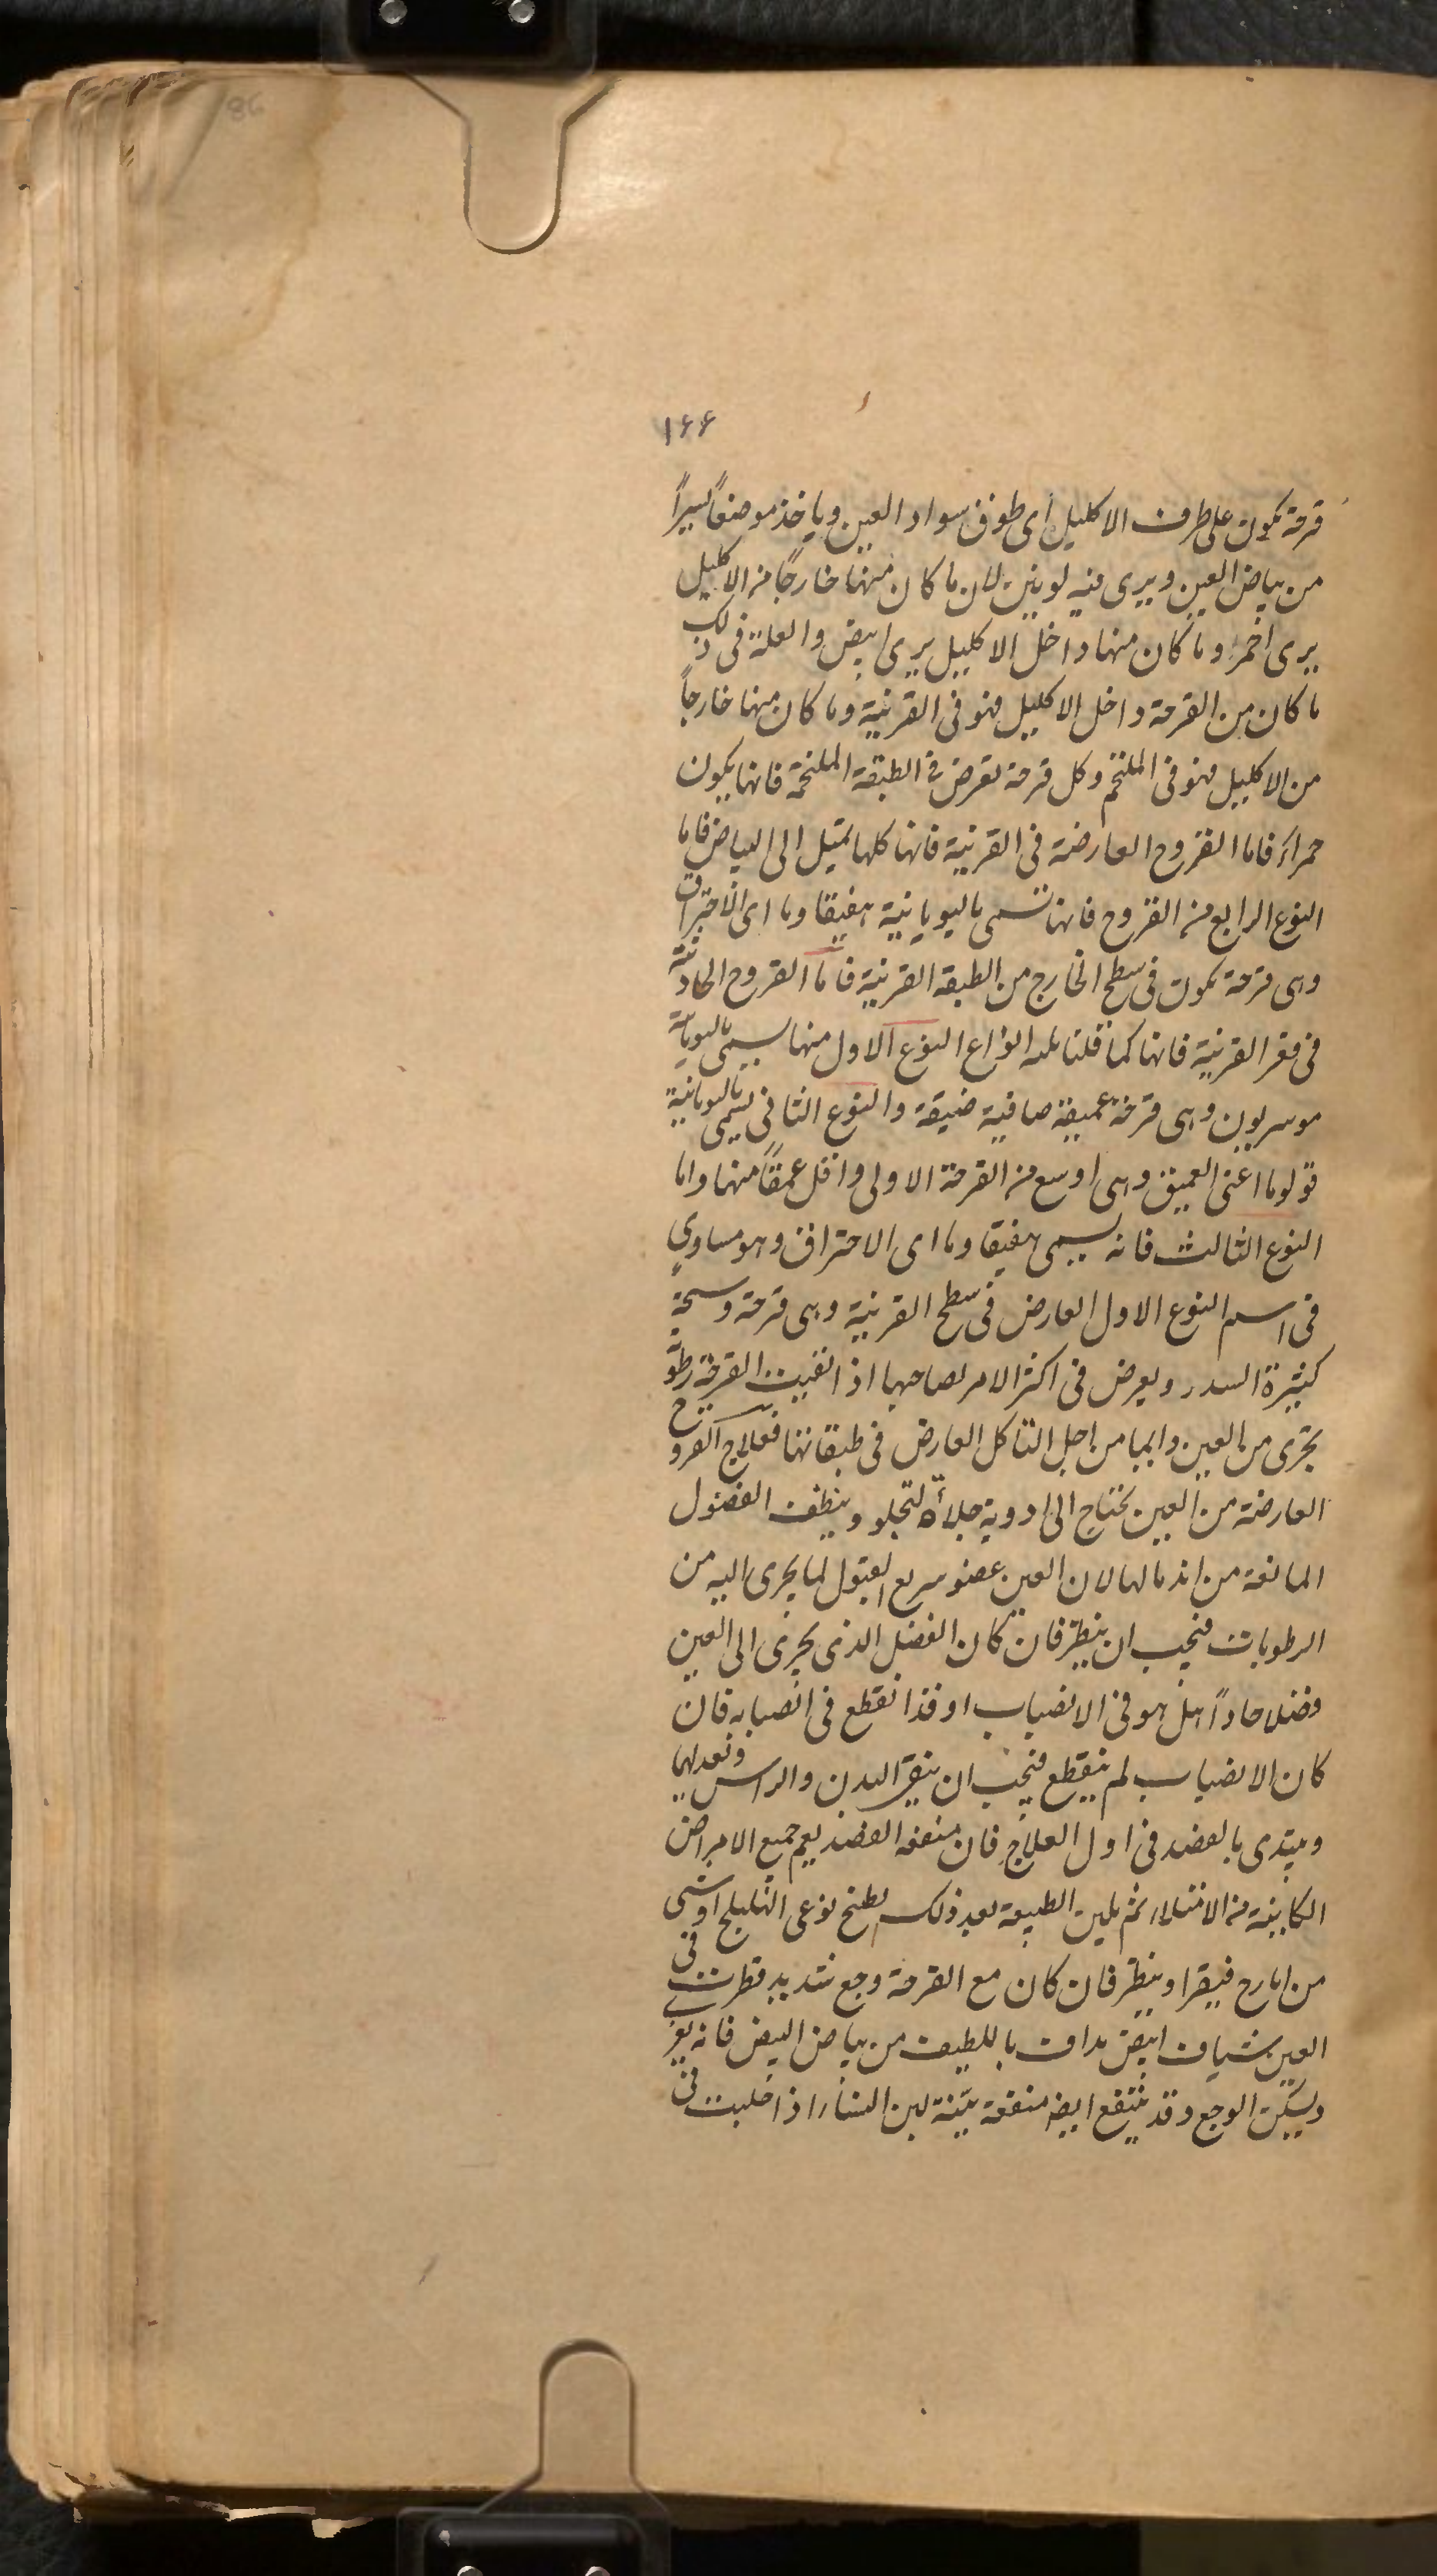 86
۱۶۶
قرحة تكون على طرف الاكليل اى طوق سواد العين وياخذ موضعاً يسيراً
من بياض العين ويرى فيه لونين لان ما كان منها خارجًا من الاكليل
يرى احمر وما كان منها داخل الاكليل يرى ابيض والعلة فى ذلك
ما كان من القرحة داخل الاكليل فهو فى القرنية وما كان منها خارجاً
من الاكليل فهو فى الملتحم وكل قرحة تعرض فى الطبقة الملتحمة فانها يكون
حمراء فاما القروح العارضة فى القرنية فانها كلها تميل الى البياض فاما
النوع الرابع من القروح فانها تسمى باليويانية هفيقا وما اى الاحتراق
وهى قرحة تكون فى سطح الخارج من الطبقة القرنية فاما القروح الحادثة
فى قعر القرنية فانها كما قلنا ثلثه انواع النوع الاول منها يسمى باليويانية
موسريون وهى قرحة عميقة صافية ضيقة والنوع الثانى يسمى باليويانية
قولوما اعنى العميق وهى اوسع من القرحة الاولى واقل عمقاً منها واما
النوع الثالث فانه يسمى هفيقا وما اى الاحتراق وهو مساوى
فى اسم النوع الاول العارض فى سطح القرنية وهى قرحة وسخة
كثيرة السدر ويعرض فى اكثر الامر لصاحبها اذا نقيت القرحة رطوبة
تجرى من العين دايما من اجل التاكل العارض فى طبقاتها فعلاج القروح
العارضة من العين يحتاج الى ادوية جلاّة لتجلو وينظف الفضول
المانعة من اندمالها لان العين عضو سريع القبول لما يجرى اليه من
الرطوبات فيجب ان ينظر فان كان الفضل الذى يجرى الى العين
فضلا حاداً هل هو فى الانصباب او قد انقطع فى انصبابه فان
كان الانصباب لم ينقطع فيجب ان ينقى البدن والراس وتعدلهما
ويبتدى بالفصد فى اول العلاج فان منفعه الفصد يعم جميع الامراض
الكاينة من الامتلاء ثم يلين الطبيعة بعد ذلك بطبخ نوعى الهليلج او شى
من ايارج فيقرا وينظر فان كان مع القرحة وجع شديد قطرت فى
العين شياف ابيض يداف باللطيف من بياض البيض فانه يغرى
ويسكن الوجع وقد ينتفع ايضا منفعة بيّنة لبن النساء اذا حلبت فى